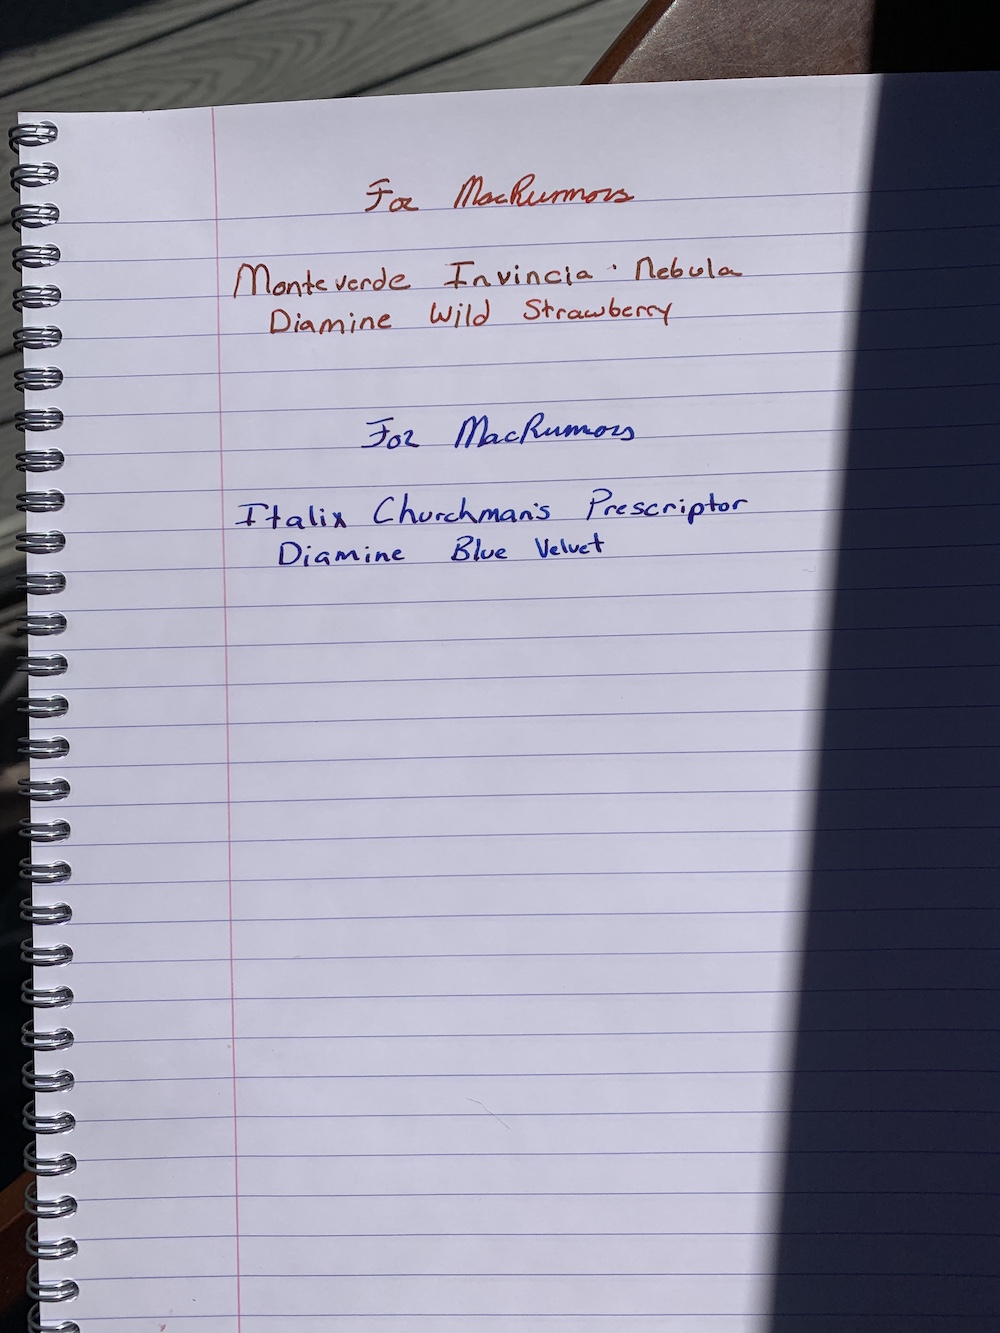 For MacRumors
Monteverde Invincia · Nebula
Diamine Wild Strawberry
For MacRumors
Italix Churchman's Prescriptor
Diamine Blue Velvet